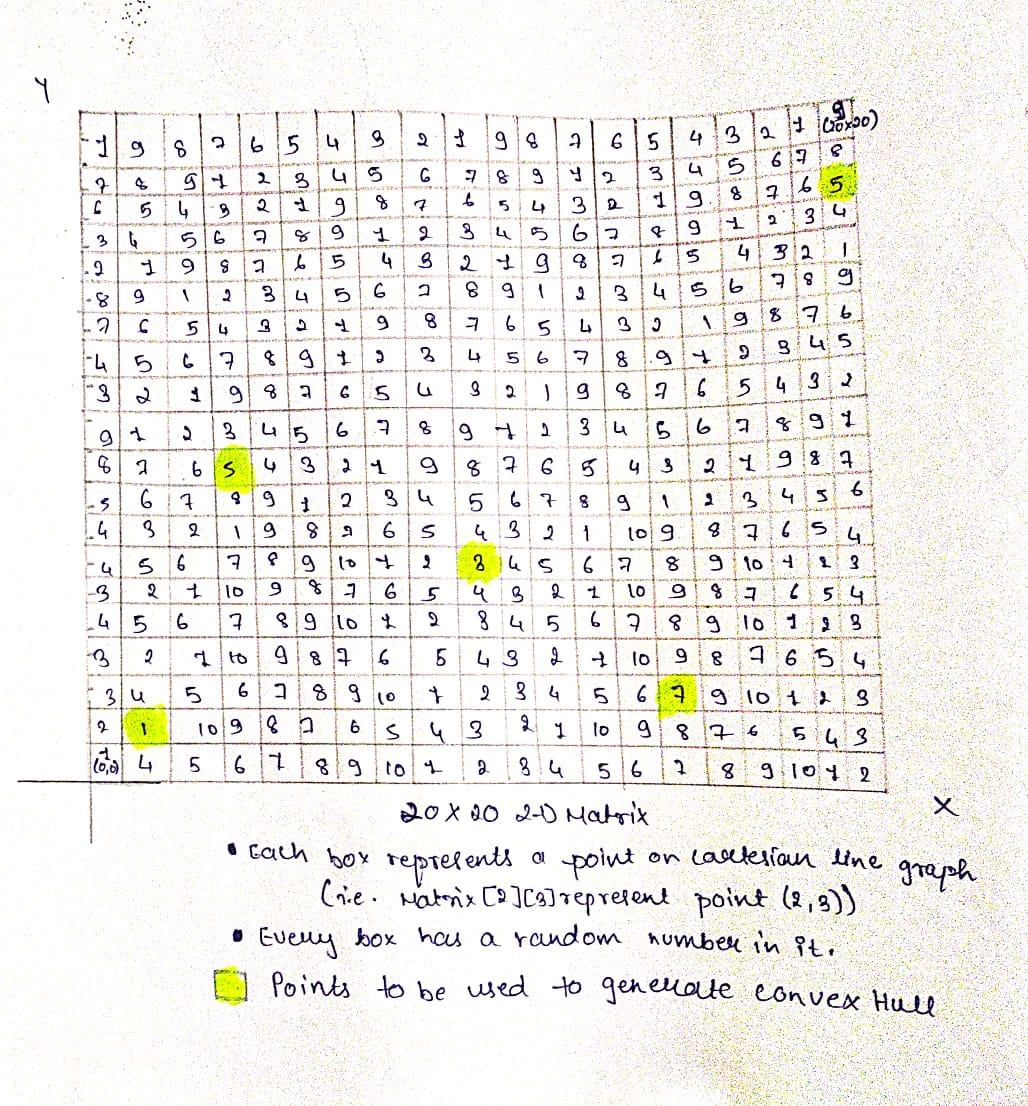 Y
1 9 8 7 6 5 4 3 2 1 9 8 7 6 5 4 3 2 1 9 (20x20)
7 8 9 1 2 3 4 5 6 7 8 9 1 2 3 4 5 6 7 8
6 5 4 3 2 1 9 8 7 6 5 4 3 2 1 9 8 7 6 5
3 4 5 6 7 8 9 1 2 3 4 5 6 7 8 9 1 2 3 4
2 1 9 8 7 6 5 4 3 2 1 9 8 7 6 5 4 3 2 1
8 9 1 2 3 4 5 6 7 8 9 1 2 3 4 5 6 7 8 9
7 6 5 4 3 2 1 9 8 7 6 5 4 3 2 1 9 8 7 6
4 5 6 7 8 9 1 2 3 4 5 6 7 8 9 1 2 3 4 5
3 2 1 9 8 7 6 5 4 3 2 1 9 8 7 6 5 4 3 2
9 1 2 3 4 5 6 7 8 9 1 2 3 4 5 6 7 8 9 1
8 7 6 5 4 3 2 1 9 8 7 6 5 4 3 2 1 9 8 7
5 6 7 8 9 1 2 3 4 5 6 7 8 9 1 2 3 4 5 6
4 3 2 1 9 8 7 6 5 4 3 2 1 10 9 8 7 6 5 4
4 5 6 7 8 9 10 1 2 3 4 5 6 7 8 9 10 1 2 3
3 2 1 10 9 8 7 6 5 4 3 2 1 10 9 8 7 6 5 4
4 5 6 7 8 9 10 1 2 3 4 5 6 7 8 9 10 1 2 3
3 2 1 10 9 8 7 6 5 4 3 2 1 10 9 8 7 6 5 4
3 4 5 6 7 8 9 10 1 2 3 4 5 6 7 9 10 1 2 3
2 1 10 9 8 7 6 5 4 3 2 1 10 9 8 7 6 5 4 3
1 (0,0) 4 5 6 7 8 9 10 1 2 3 4 5 6 7 8 9 10 1 2
X
20 X 20 2-D Matrix
• Each box represents a point on cartesian line graph
(i.e. Matrix [2][3] represent point (2,3))
• Every box has a random number in it.
Points to be used to generate convex Hull